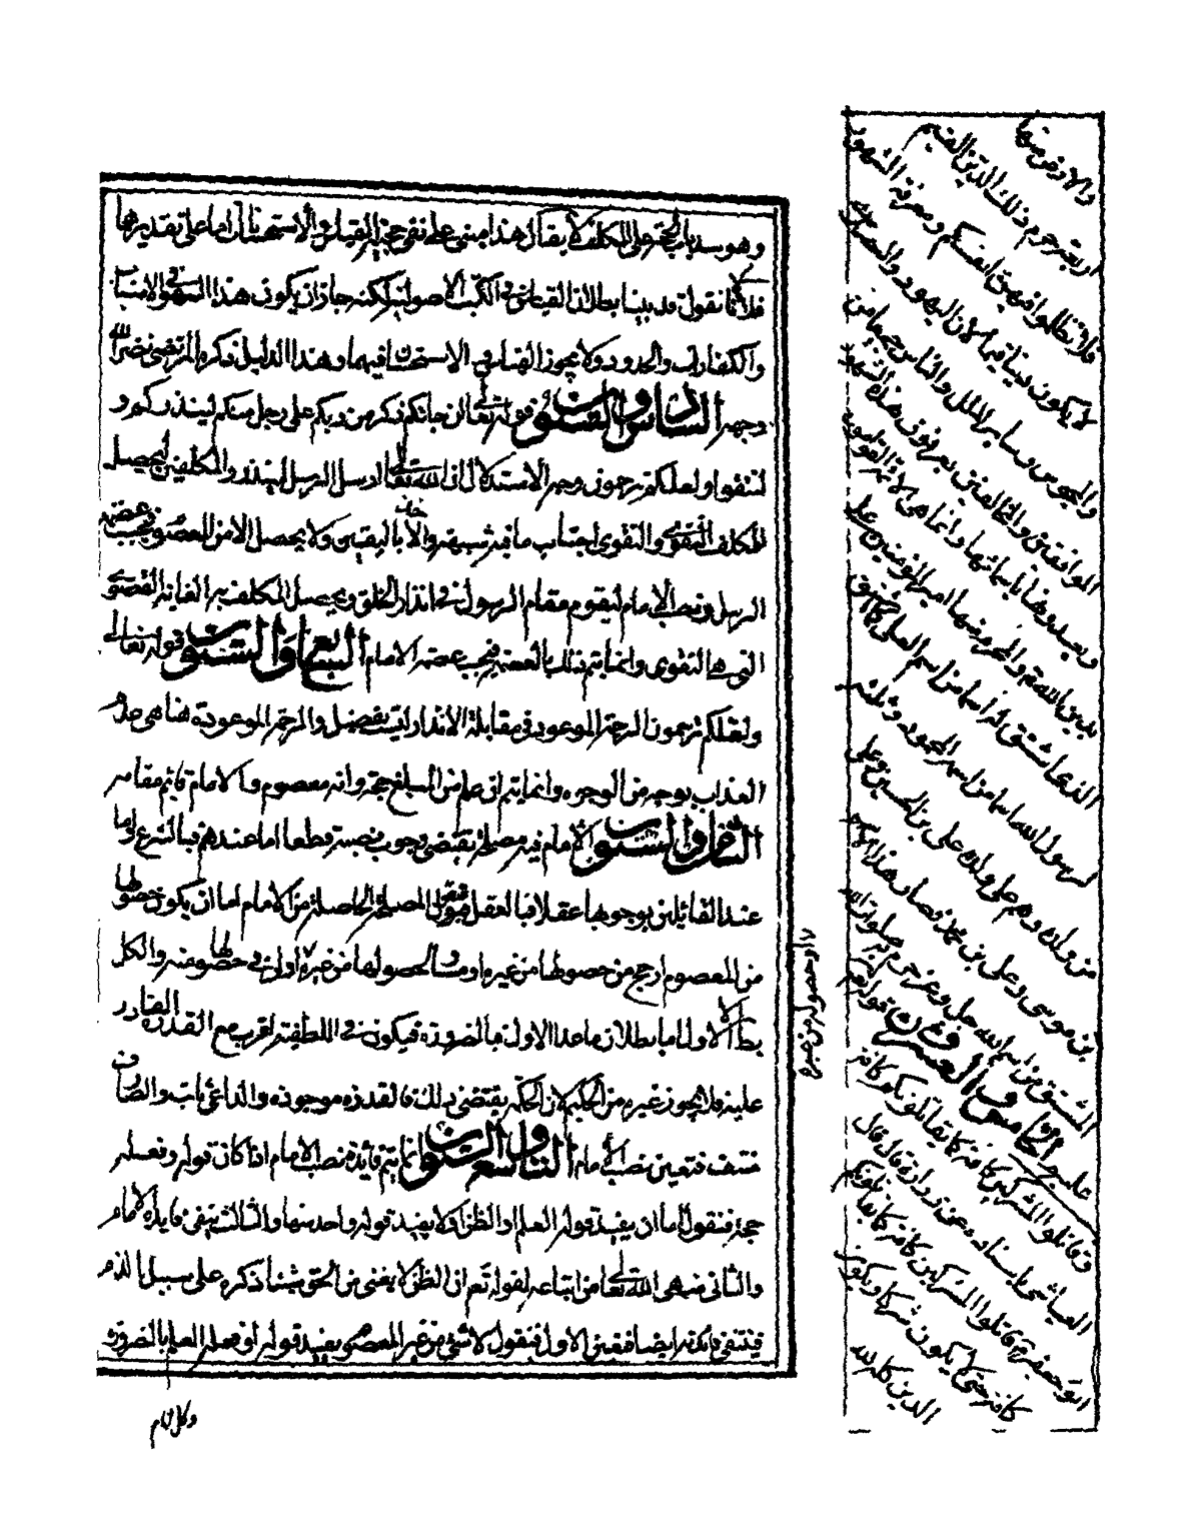 وهو سد باب الحجة على المكلف لا يقال هذا مبنى على نفى حجية القياس والاستحسان اما على تقديرها
فلا لانا نقول قد بينا بطلان القياس فى الكتب الاصولية لكنه جاز ان يكون هذا السهو والاسباب
والكفارات والحدود ولا يجوز القياس والاستحسان فيها وهذا الدليل ذكره المرتضى نضر الله
وجهه السادس والستون قوله تعالى ان جاءكم ذكر من ربكم على رجل منكم لينذركم و
لتتقوا ولعلكم ترحمون وجه الاستدلال ان الله تعالى ارسل الرسل لينذروا المكلفين ليحصل
للمكلف التقوى والتقوى اجتناب ما فيه شبهة والاخذ باليقين ولا يحصل الا من المعصوم فيجب عصمة
الرسل ونصب الامام ليقوم مقام الرسول فى انذار الخلق ويحصل للمكلف به الغاية القصوى
التى هى التقوى وانما يتم ذلك بالعصمة فيجب عصمة الامام السابع والستون قوله تعالى
ولعلكم ترحمون الرحمة الموعود فى مقابلة الانذار ليست بفضل والرحمة الموعودة هنا هى
العذاب بوجه من الوجوه وانما يتم اذ علم ان المبلغ حجة وانه معصوم والامام قائم مقامه
الثامن والستون الامام فيه مصلحة يقتضى وجوب نصبه قطعا اما عندهم فبالشرع واما
عند القائلين بوجوبها عقلا فبالعقل فنقول المصلحة الحاصلة من الامام اما ان يكون حصولها
من المعصوم ارجح من حصولها من غيره او مساو لحصولها من غيره او لا دخل فى حصولها منه والكل
بط الا الاول اما بطلان ما عدا الاول فبالضرورة فيكون فى اللطفية اقرب مع القدرة القادر
عليه فلا يجوز غيره من الحكيم لان الحكمة يقتضى ذلك فالقدرة موجودة والداعى ثابت والصارف
منتف فتعين نصب الامام التاسع والستون انما يتم فائدة نصب الامام اذا كان قوله وفعله
حجة فنقول اما ان يفيد قوله العلم او الظن او لا يفيد قوله واحد منها والثالث ينفى فائدة الامام
والثانى منهى الله تعالى من اتباعه لقوله تعم ان الظن لا يغنى من الحق شيئا ذكره على سبيل الذم
فينتفى فائدته ايضا فتعين الاول فنقول لا شئ من غير المعصوم يفيد قوله او فعله العلم بالضرورة
وكل امام
او حصوله من غيره
والارض منها
اربعة حرم ذلك الدين القيم
فلا تظلموا فيهن انفسكم ومعرفة الشهور
لا يكون دينا قيما لان اليهود والنصارى
والمجوس وساير الملل والناس جميعا من
الموافقين والمخالفين يعرفون هذه الشهور
ويعدونها باسمائها وانما هى الائمة القوامون
بدين الله تعم والحرم منها امير المؤمنين على
الذى اشتق له اسما من اسمه العلى كما اشتق
لرسول الله اسما من اسمه المحمود وثلثه
من ولده وهم على ولده على بن الحسين وعلى
بن موسى وعلى بن محمد فصار لهذا الاسم
المشتق من اسم الله جل وعز حرمة صلوات الله
عليه الخامس والعشرون قوله تعم
وقاتلوا المشركين كافة كما يقاتلونكم كافة
العياشى باسناده عن زرارة قال قال
ابو جعفر ع قاتلوا المشركين كافة كما يقاتلونكم
كافة حتى لا يكون شرك ويكون
الدين كله لله